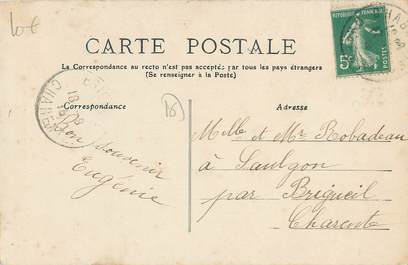 10€
CARTE POSTALE
La Correspondance au recto n'est pas acceptée par tous les pays étrangers
(Se renseigner à la Poste)
Correspondance
Adresse
REPUBLIQUE FRANÇAISE
5c
18
Bon souvenir
Eugénie
Melle et Mr Robadeau
à Saulgon
par Brigueil
Charente